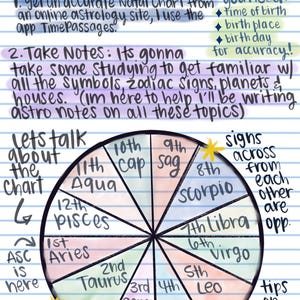 1. get an accurate Natal Chart from
an online astrology site, I use the
app TimePassages.
• time of birth
• birth place
• birthday
for accuracy!
2. Take Notes: Its gonna
take some studying to get familiar w/
all the symbols, zodiac signs, planets &
houses. (im here to help I'll be writing
astro notes on all these topics)
lets talk
about
the
chart
signs
across
from
each
other
are
opp.
10th
cap
9th
sag
11th
Aqua
8th
Scorpio
12th
Pisces
7th Libra
1st
Aries
6th
Virgo
2nd
Taurus
5th
Leo
3rd
4th
ASC
is
here
tips